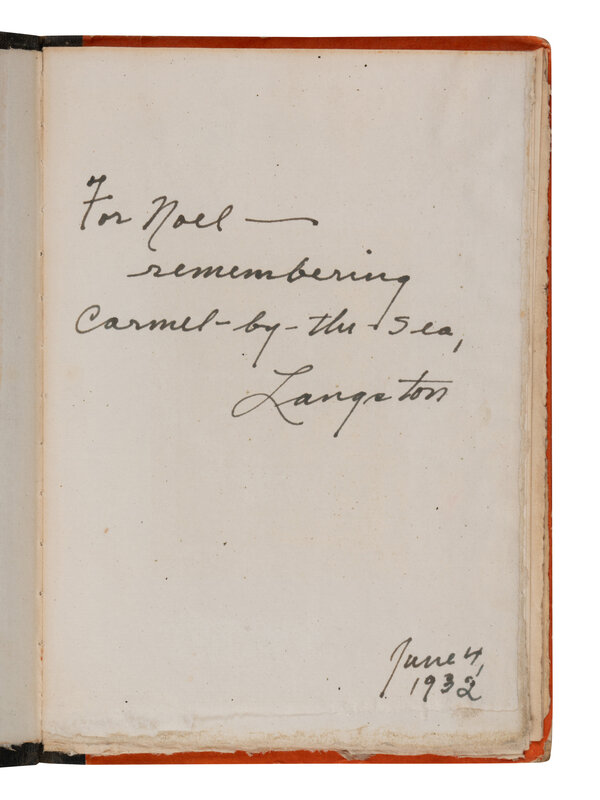 For Noel —
remembering
Carmel-by-the-Sea,
Langston
June 4,
1932